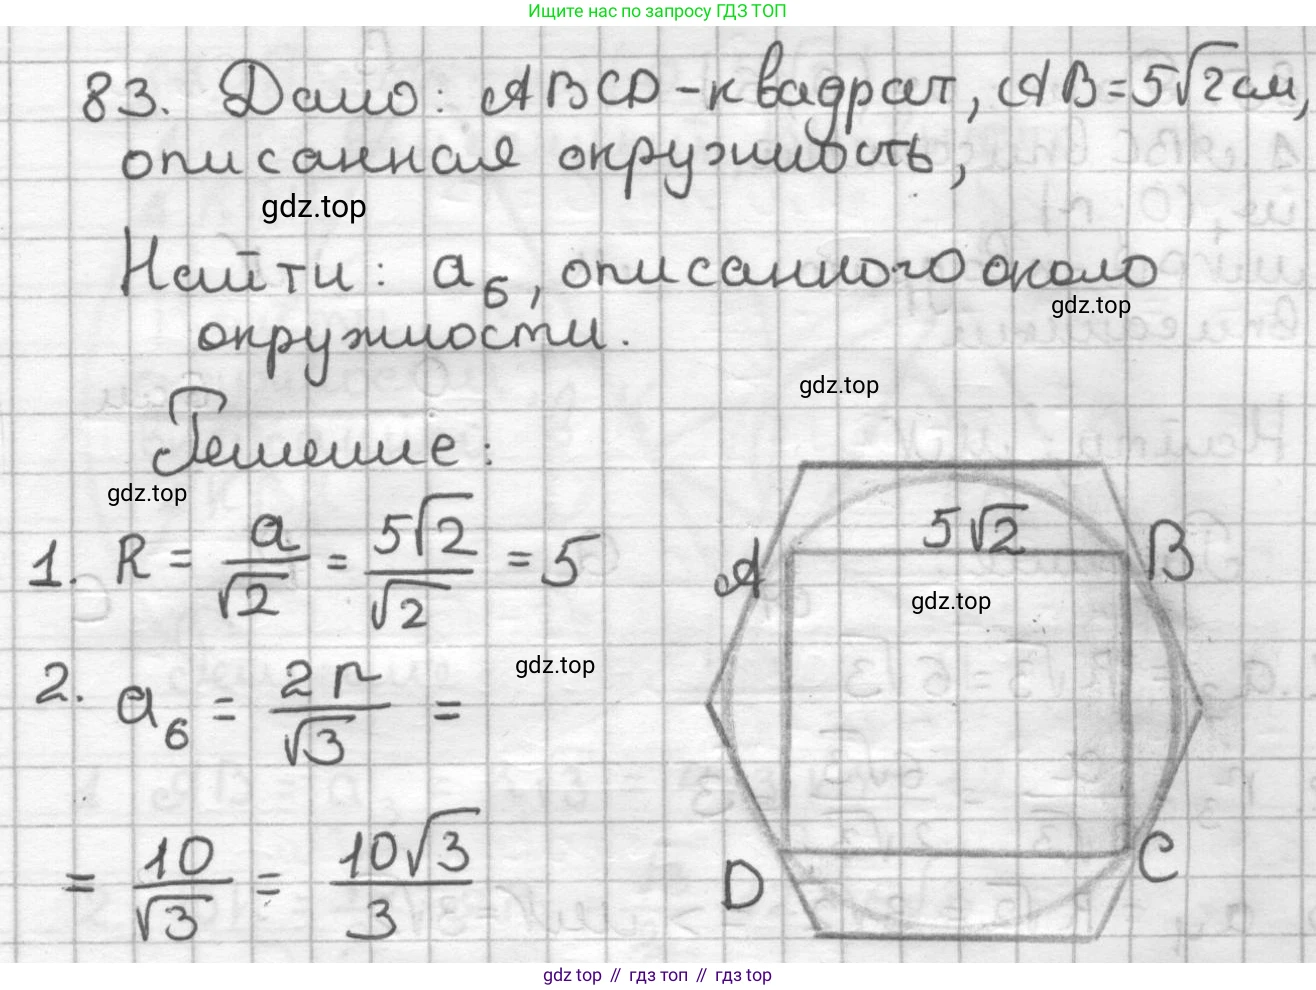 Ищите нас по запросу ГДЗ ТОП
83. Дано: ABCD - квадрат, AB = 5√2 см,
описанная окружность,
gdz.top
Найти: a₆, описанного около
gdz.top
окружности.
gdz.top
Решение:
gdz.top
1. R = a/√2 = 5√2/√2 = 5
5√2
A
B
gdz.top
gdz.top
2. a₆ = 2r/√3 =
= 10/√3 = 10√3/3
D
C
gdz.top // гдз топ // гдз top